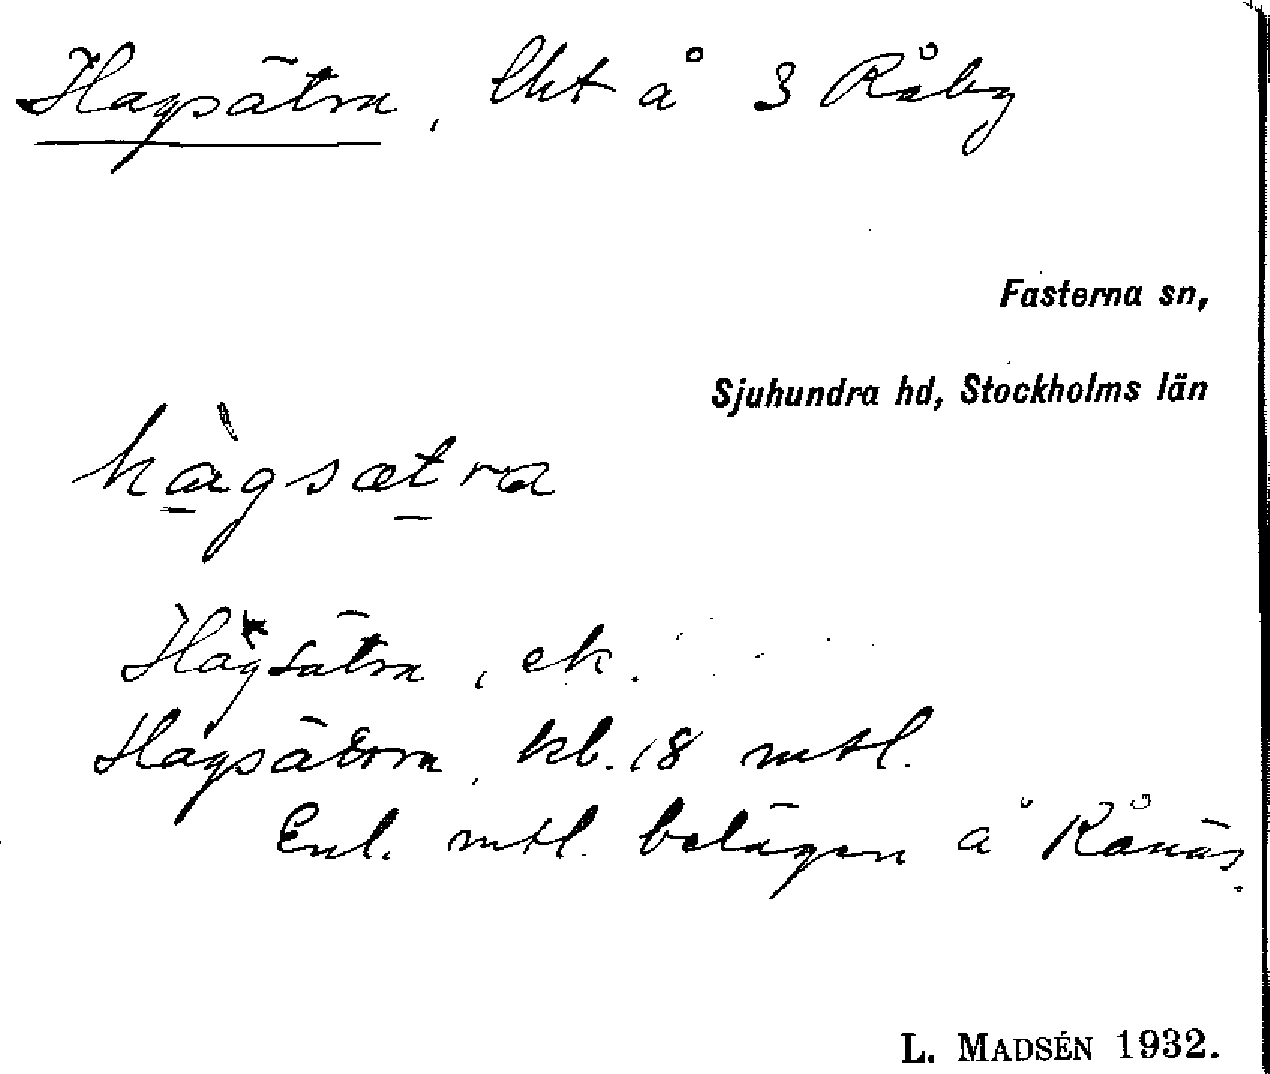 Hagsätra, lht å 3 Råby
Fasterna sn,
Sjuhundra hd, Stockholms län
hàgsætra
Hagsätra, ek.
Hagsättra, kb. 18 mtl.
Enl. mtl. belägen å Rånäs.
L. MADSÉN 1932.